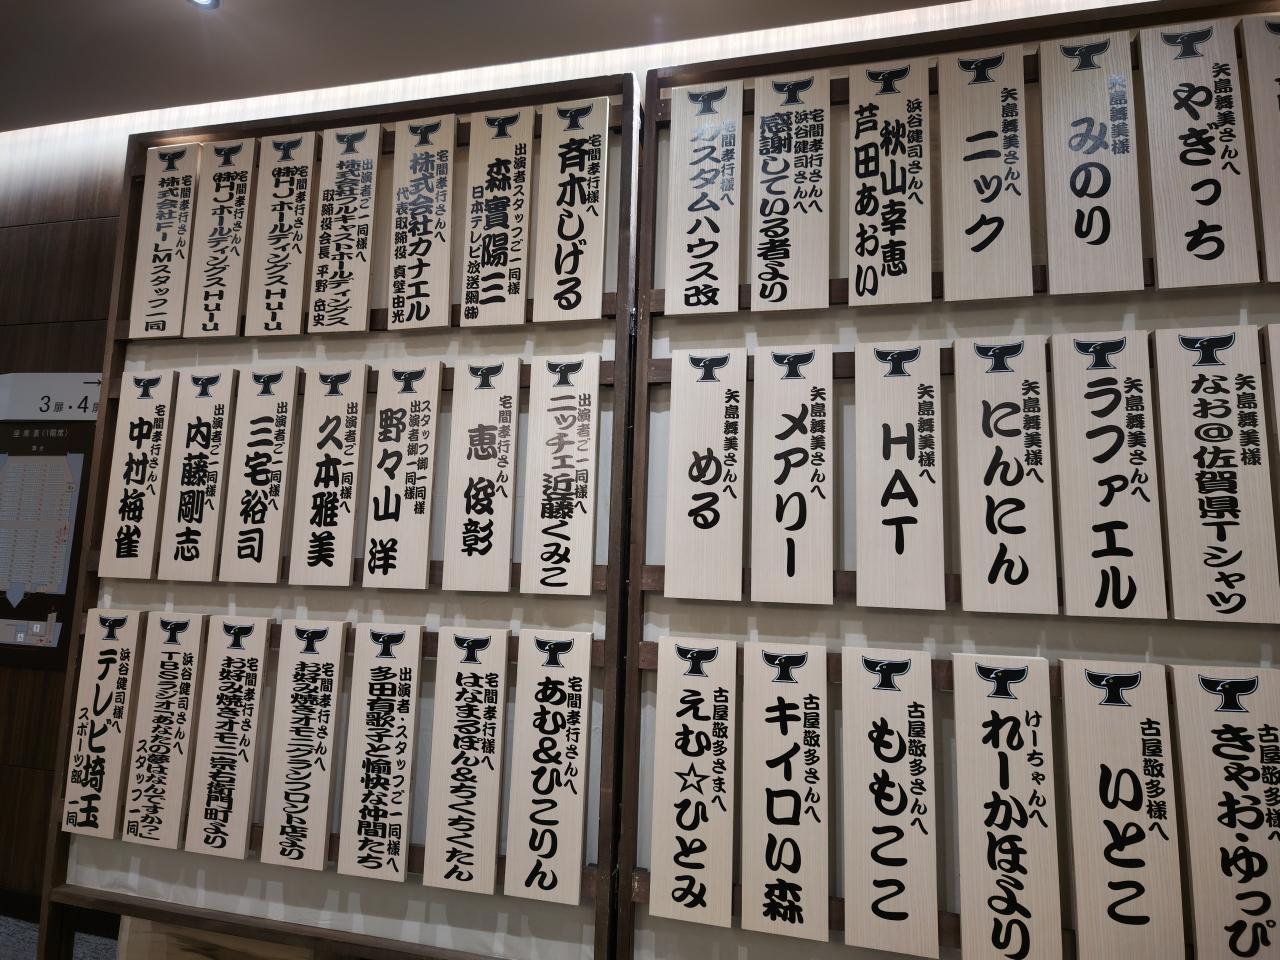 斉木しげる
宅間孝行様へ
森實陽三
日本テレビ放送網㈱
出演者スタッフご一同様へ
株式会社カナエル
代表取締役 真壁由光
宅間孝行さんへ
株式会社フルキャストホールディングス
取締役会長 平野岳史
出演者ご一同様へ
㈱HJホールディングスHulu
宅間孝行さんへ
㈱HJホールディングスHulu
宅間孝行様へ
株式会社FILMスタッフ一同
宅間孝行さんへ
ニッチェ近藤くみこ
出演者ご一同様へ
恵 俊彰
宅間孝行さんへ
野々山 洋
スタッフ御一同様
出演者御一同様へ
久本雅美
出演者ご一同様へ
三宅裕司
出演者ご一同様へ
内藤剛志
出演者ご一同様へ
中村梅雀
宅間孝行さんへ
あむ&ひこりん
宅間孝行さんへ
はなまるぽん&ちくちくたん
宅間孝行様へ
多田有歌子と愉快な仲間たち
出演者・スタッフご一同様へ
お好み焼きオモニグランフロント店より
宅間孝行さんへ
お好み焼きオモニ宗右衛門町より
宅間孝行さんへ
TBSラジオ「あなたの夢はなんですか?」
スタッフ一同
浜谷健司さんへ
テレビ埼玉
スポーツ部一同
浜谷健司様へ
やぎっち
矢島舞美さんへ
みのり
矢島舞美様
ニック
矢島舞美さんへ
秋山幸恵
芦田あおい
浜谷健司さんへ
感謝している者より
宅間孝行さんへ
浜谷健司さんへ
カスタムハウス改
宅間孝行様へ
なお@佐賀県Tシャツ
矢島舞美様
ラファエル
矢島舞美さんへ
にんにん
矢島舞美様へ
HAT
矢島舞美様へ
メアリー
矢島舞美さんへ
める
矢島舞美さんへ
きゃおゆっぴ
古屋敬多
いとこ
古屋敬多様へ
れーかほより
けーちゃんへ
ももここ
古屋敬多さんへ
キイロい森
古屋敬多さんへ
えむ☆ひとみ
古屋敬多さまへ
3扉・4扉
→
座席表(1階席)